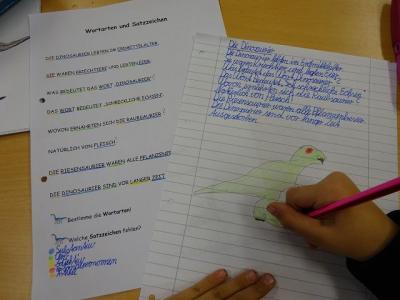 Wortarten und Satzzeichen
DIE DINOSAURIER LEBTEN IM ERDMITTELALTER.
SIE WAREN KRIECHTIERE UND LEGTEN EIER.
WAS BEDEUTET DAS WORT „DINOSAURIER"?
DAS WORT BEDEUTET „SCHRECKLICHE ECHSEN".
WOVON ERNÄHRTEN SICH DIE RAUBSAURIER?
NATÜRLICH VON FLEISCH!
DIE RIESENSAURIER WAREN ALLE PFLANZENFRESSER
DIE DINOSAURIER SIND VOR LANGER ZEIT
Bestimme die Wortarten!
Welche Satzzeichen fehlen?
Substantiv
Artikel
Die Dinosaurier
Die Dinosaurier lebten im Erdmittelalter.
Sie waren Kriechtiere und legten Eier.
Was bedeutet das Wort
Das Wort bedeutet „Schreckliche Echsen".
Wovon ernährten sich die Raubsaurier?
Natürlich von Fleisch!
Die Riesensaurier waren alle Pflanzenfresser.
Die Dinosaurier sind vor langer Zeit
Ausgestorben.